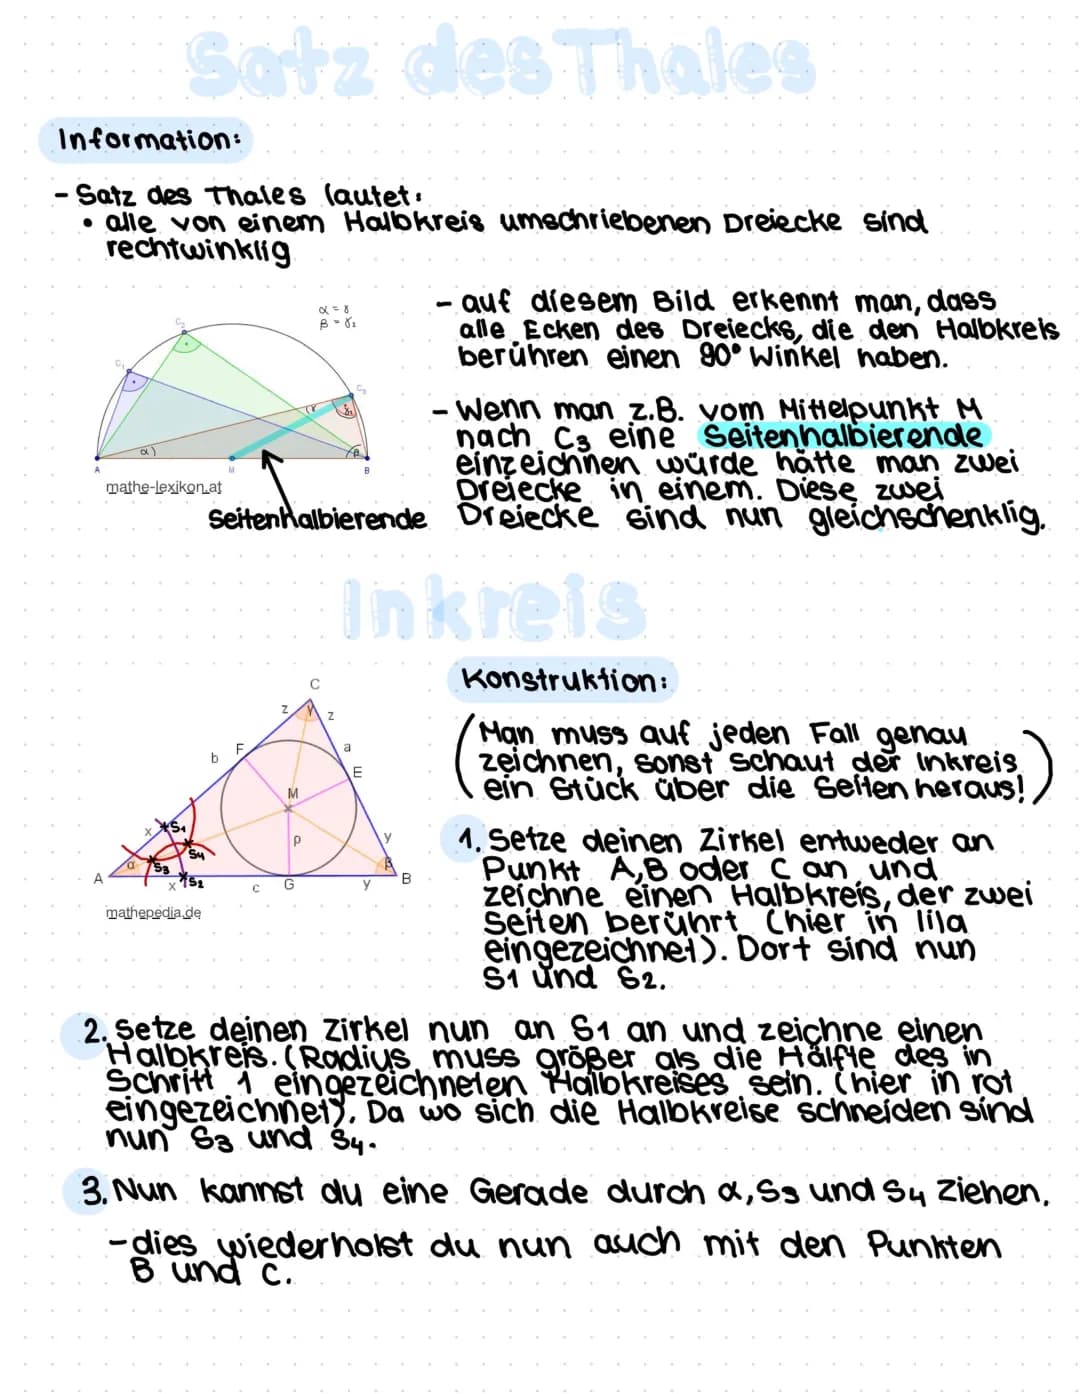 Satz des Thales
Information:
- Satz des Thales lautet:
• alle von einem Halbkreis umschriebenen Dreiecke sind
rechtwinklig
α = γ
β = γ₁
C₂
C₁
C₃
γ
γ₁
α
β
A
M
B
mathe-lexikon.at
Seitenhalbierende
- auf diesem Bild erkennt man, dass
alle Ecken des Dreiecks, die den Halbkreis
berühren einen 90° Winkel haben.
- Wenn man z.B. vom Mittelpunkt M
nach C₃ eine Seitenhalbierende
einzeichnen würde hätte man zwei
Dreiecke in einem. Diese zwei
Dreiecke sind nun gleichschenklig.
Inkreis
C
z
γ
z
b
F
a
E
M
x
S1
S4
ρ
y
α
S3
β
A
x
S2
c
G
y
B
mathepedia.de
Konstruktion:
(Man muss auf jeden Fall genau
zeichnen, sonst schaut der Inkreis
ein Stück über die Seiten heraus!)
1. Setze deinen Zirkel entweder an
Punkt A,B oder C an und
zeichne einen Halbkreis, der zwei
Seiten berührt (hier in lila
eingezeichnet). Dort sind nun
S1 und S2.
2. Setze deinen Zirkel nun an S1 an und zeichne einen
Halbkreis. (Radius muss größer als die Hälfte des in
Schritt 1 eingezeichneten Halbkreises sein. (hier in rot
eingezeichnet). Da wo sich die Halbkreise schneiden sind
nun S3 und S4.
3. Nun kannst du eine Gerade durch α, S3 und S4 ziehen.
- dies wiederholst du nun auch mit den Punkten
B und C.